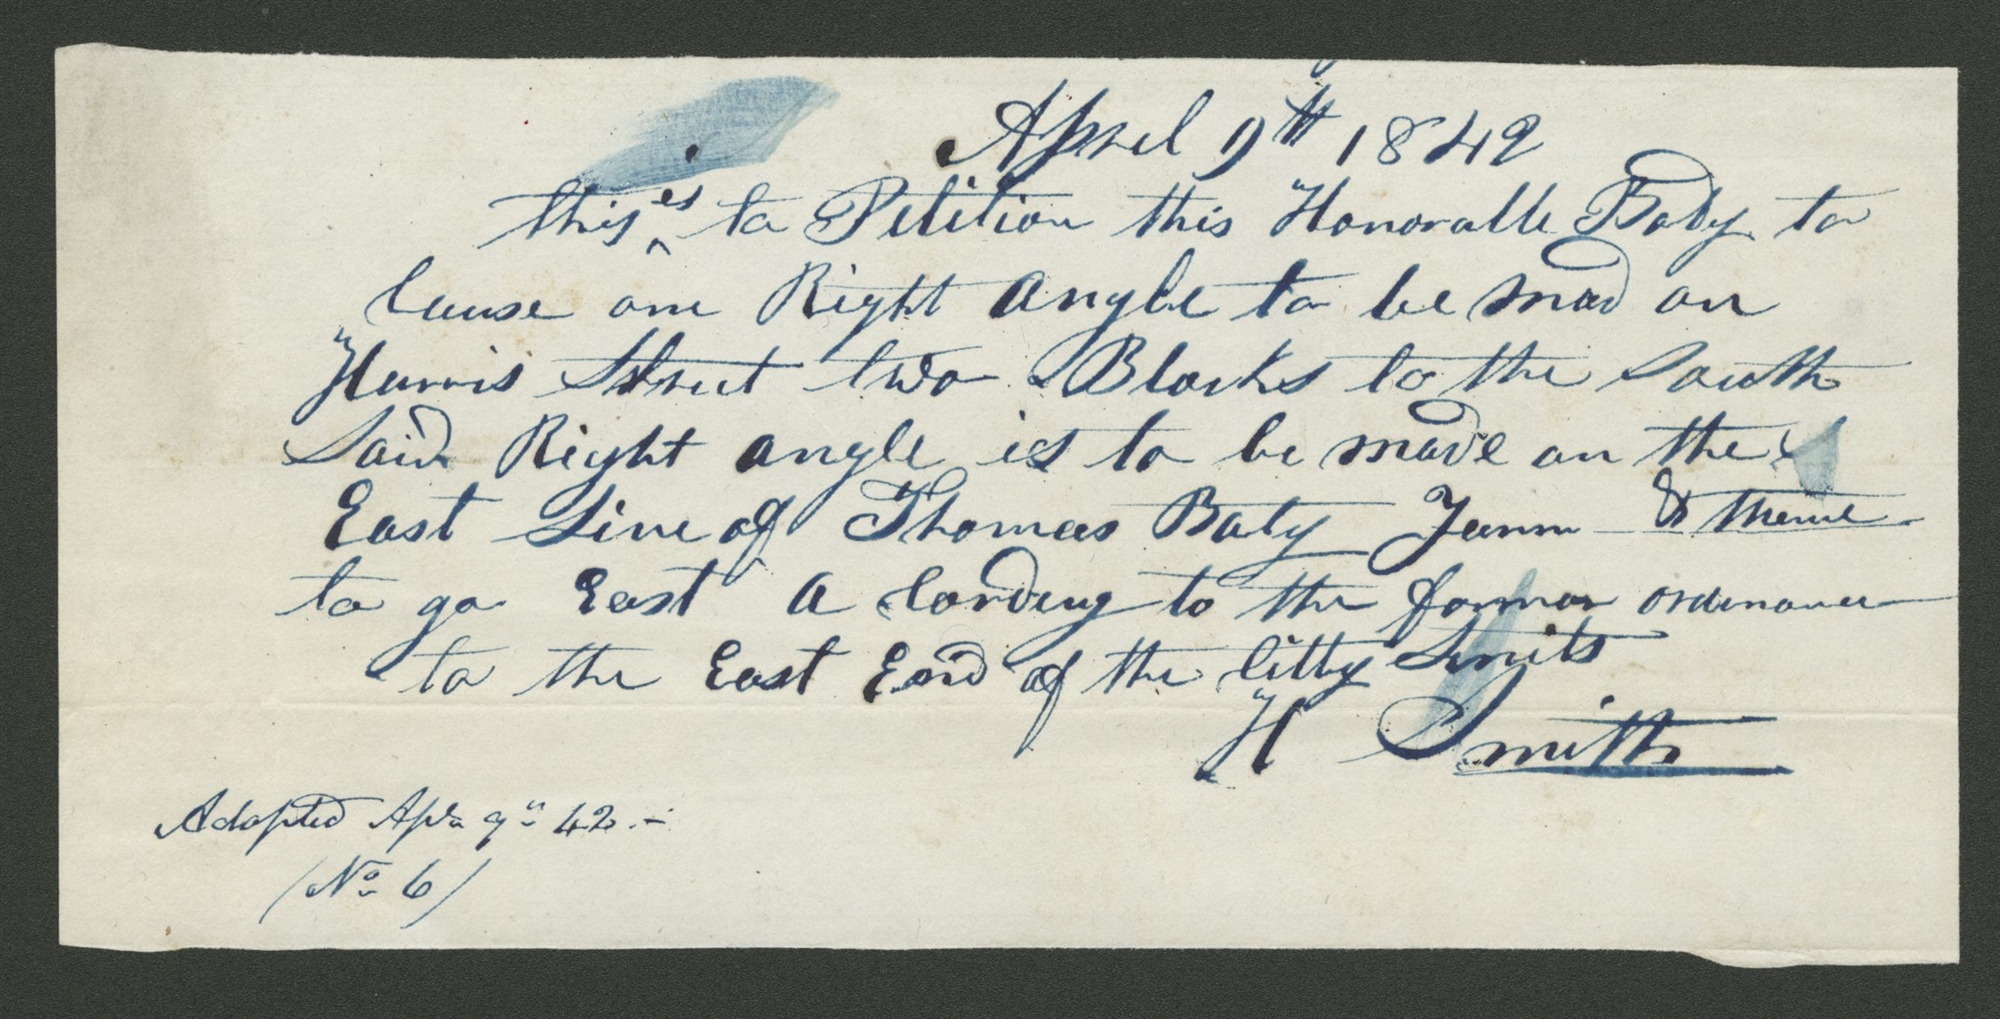 April 9th 1842
this is to Petition this Honorable Body to
Cause one Right angle to be mad on
Harris Street two Blocks to the South
Said Right angle is to be made on the
East Line of Thomas Baty Farm & thence
to go East a Cording to the former ordenance
to the East End of the Citty Limits
H Smith
Adopted Apl. 9th 42.-
(No. 6)